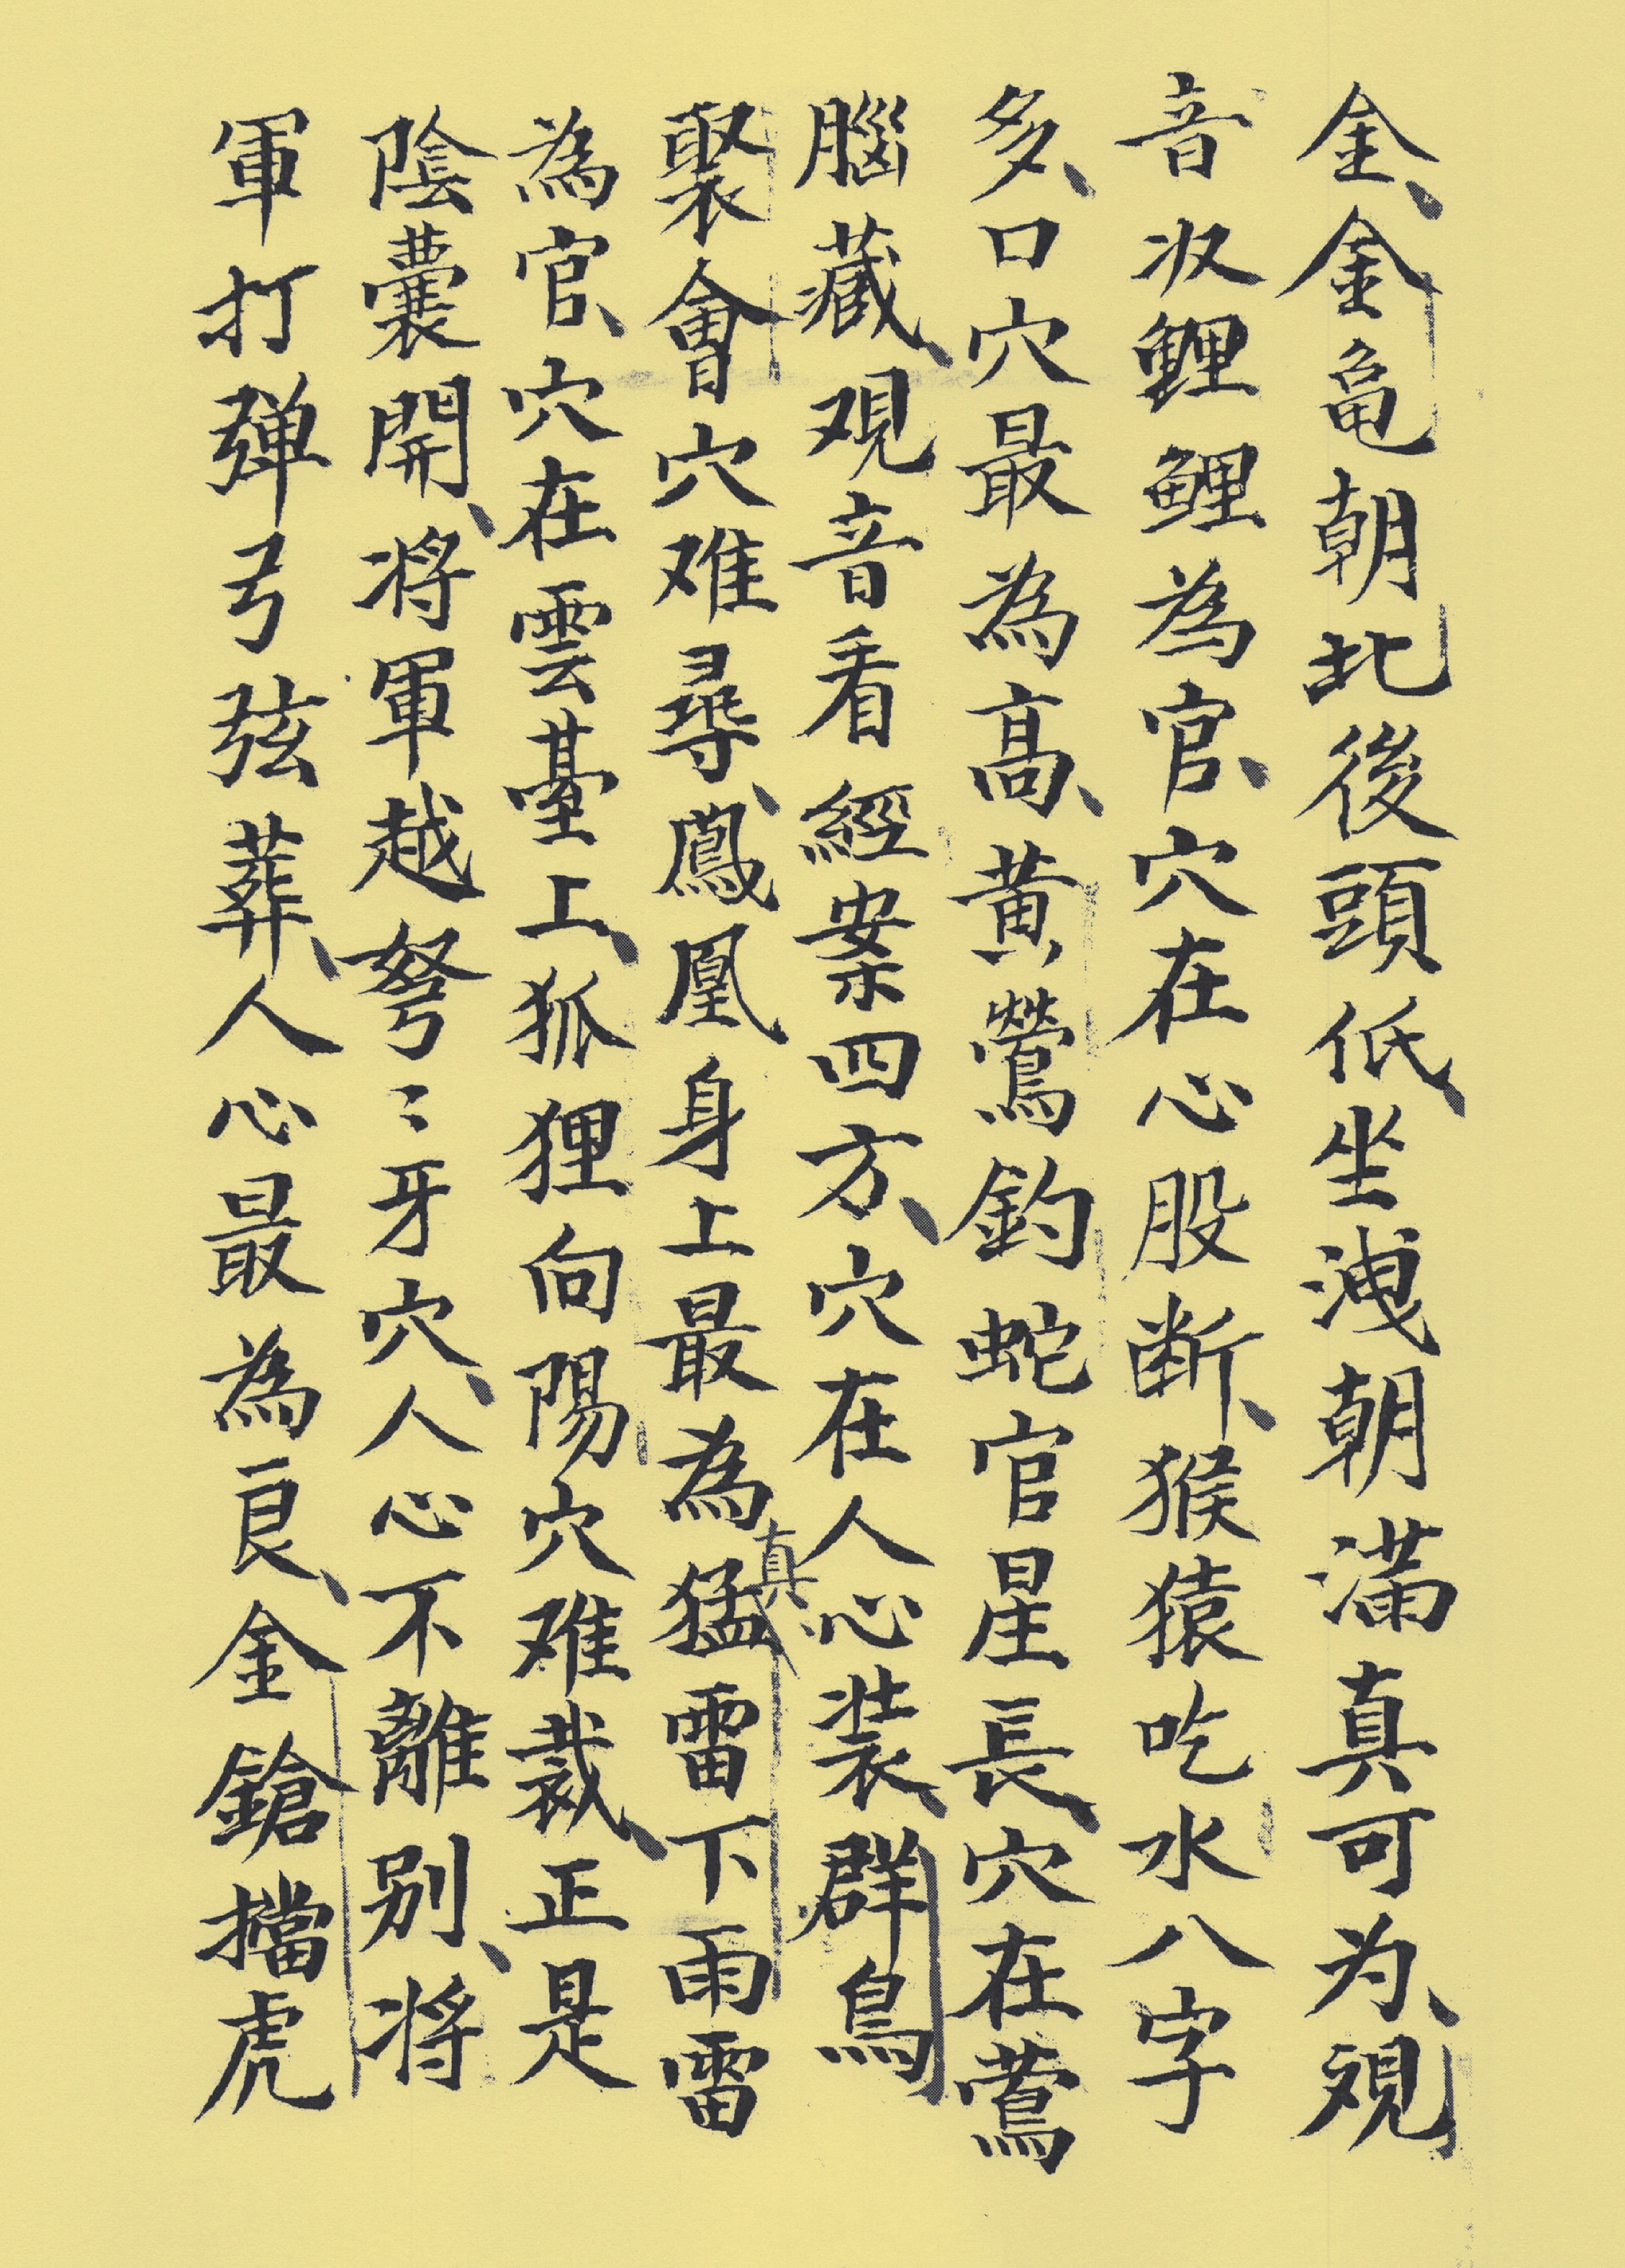 金、金亀朝北後頭低、坐洩朝满真可为、观
音汷鲤鲤為官、穴在心股断、猴猿吃水八字
多、口穴最為高、黄鶯釣蛇官星長、穴在鶯
腦藏、观音看經案四方、穴在人心装、群鳥
聚會穴难尋、鳳凰身上最為真、猛雷下雨雷
為官、穴在雲臺上、狐狸向陽穴难裁、正是
陰囊開、将軍越弩〻牙穴、人心不離别、将
軍打弹弓弦葬、人心最為良、金鎗擋虎